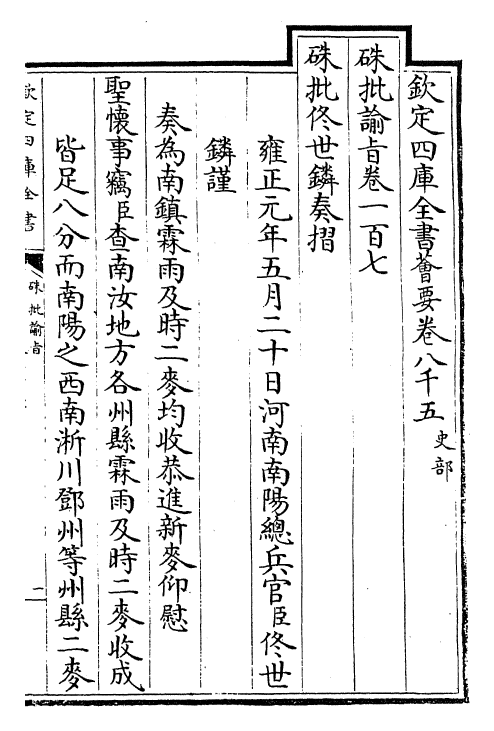 欽定四庫全書薈要卷八千五 史部
硃批諭旨卷一百七
硃批佟世鏻奏摺
雍正元年五月二十日河南南陽總兵官臣佟世
鏻謹
奏為南鎮霖雨及時二麥均收恭進新麥仰慰
聖懷事竊臣查南汝地方各州縣霖雨及時二麥收成
皆足八分而南陽之西南淅川鄧州等州縣二麥
欽定四庫全書
硃批諭旨